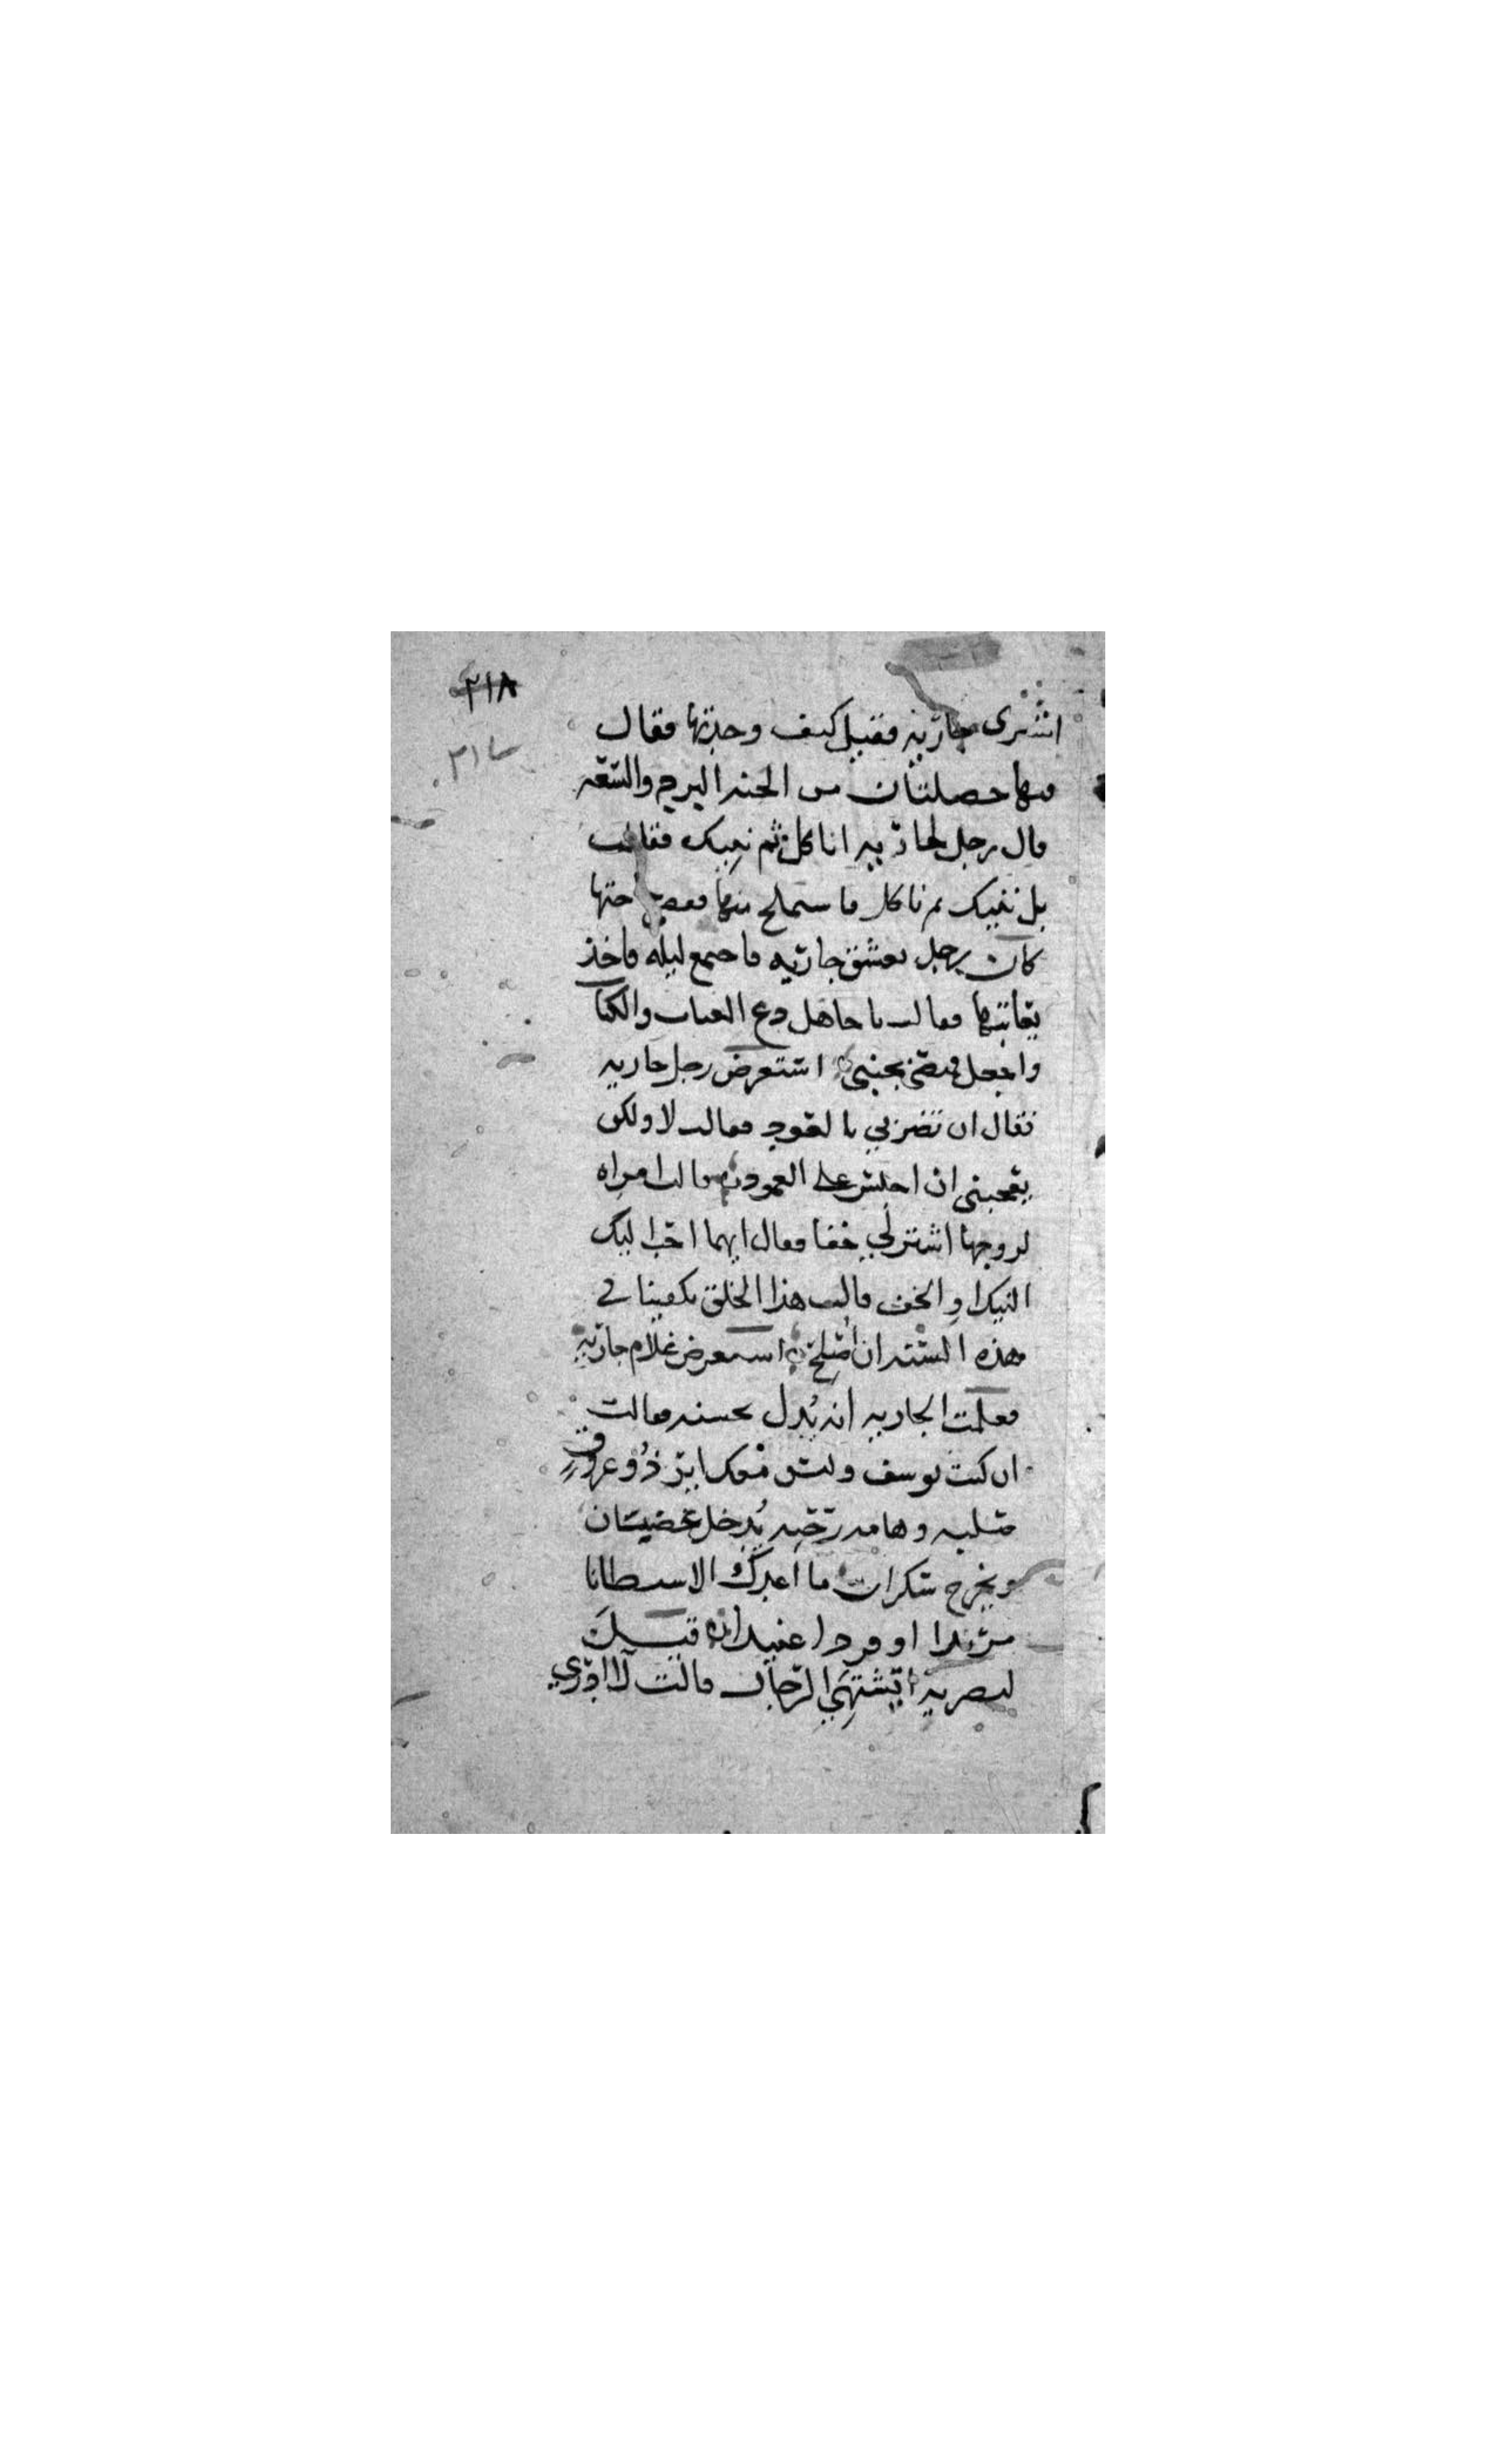 ٢١٨
٢١
اشترى جارية فقيل كيف وجدتها فقال
فيها خصلتان من الجنة البرد والسعة
قال رجل لجارية ناكل ثم نعبك فقالت
بل ننيك ثم ناكل فاستملح منها
كان رجل يعشق جارية فاجتمع ليلة فاخذ
يعاتبها فقالت يا جاهل دع العتاب والكتا
واجعل بجنبي استعرض رجل جارية
فقال ان تضربي بالعود فقالت لا ولكن
يعجبني ان اجلس على العمود قالت امراه
لزوجها اشتر لي خفا فقال ايهما احب اليك
النيك او الخف قالت هذا الخلق يكفينا في
هذه السنة ان اصلح استعرض غلام جارية
فعلمت الجارية انه يدل بحسنه فقالت
ان كنت يوسف وليس معك اير ذو عروق
صلبه وهامه رحبه يدخل غضبان
ويخرج سكران ما اعدك الا سطانا
مريدا او قردا عنيدا قيل
لبصرية اتشتهي الرجال قالت لا ادري